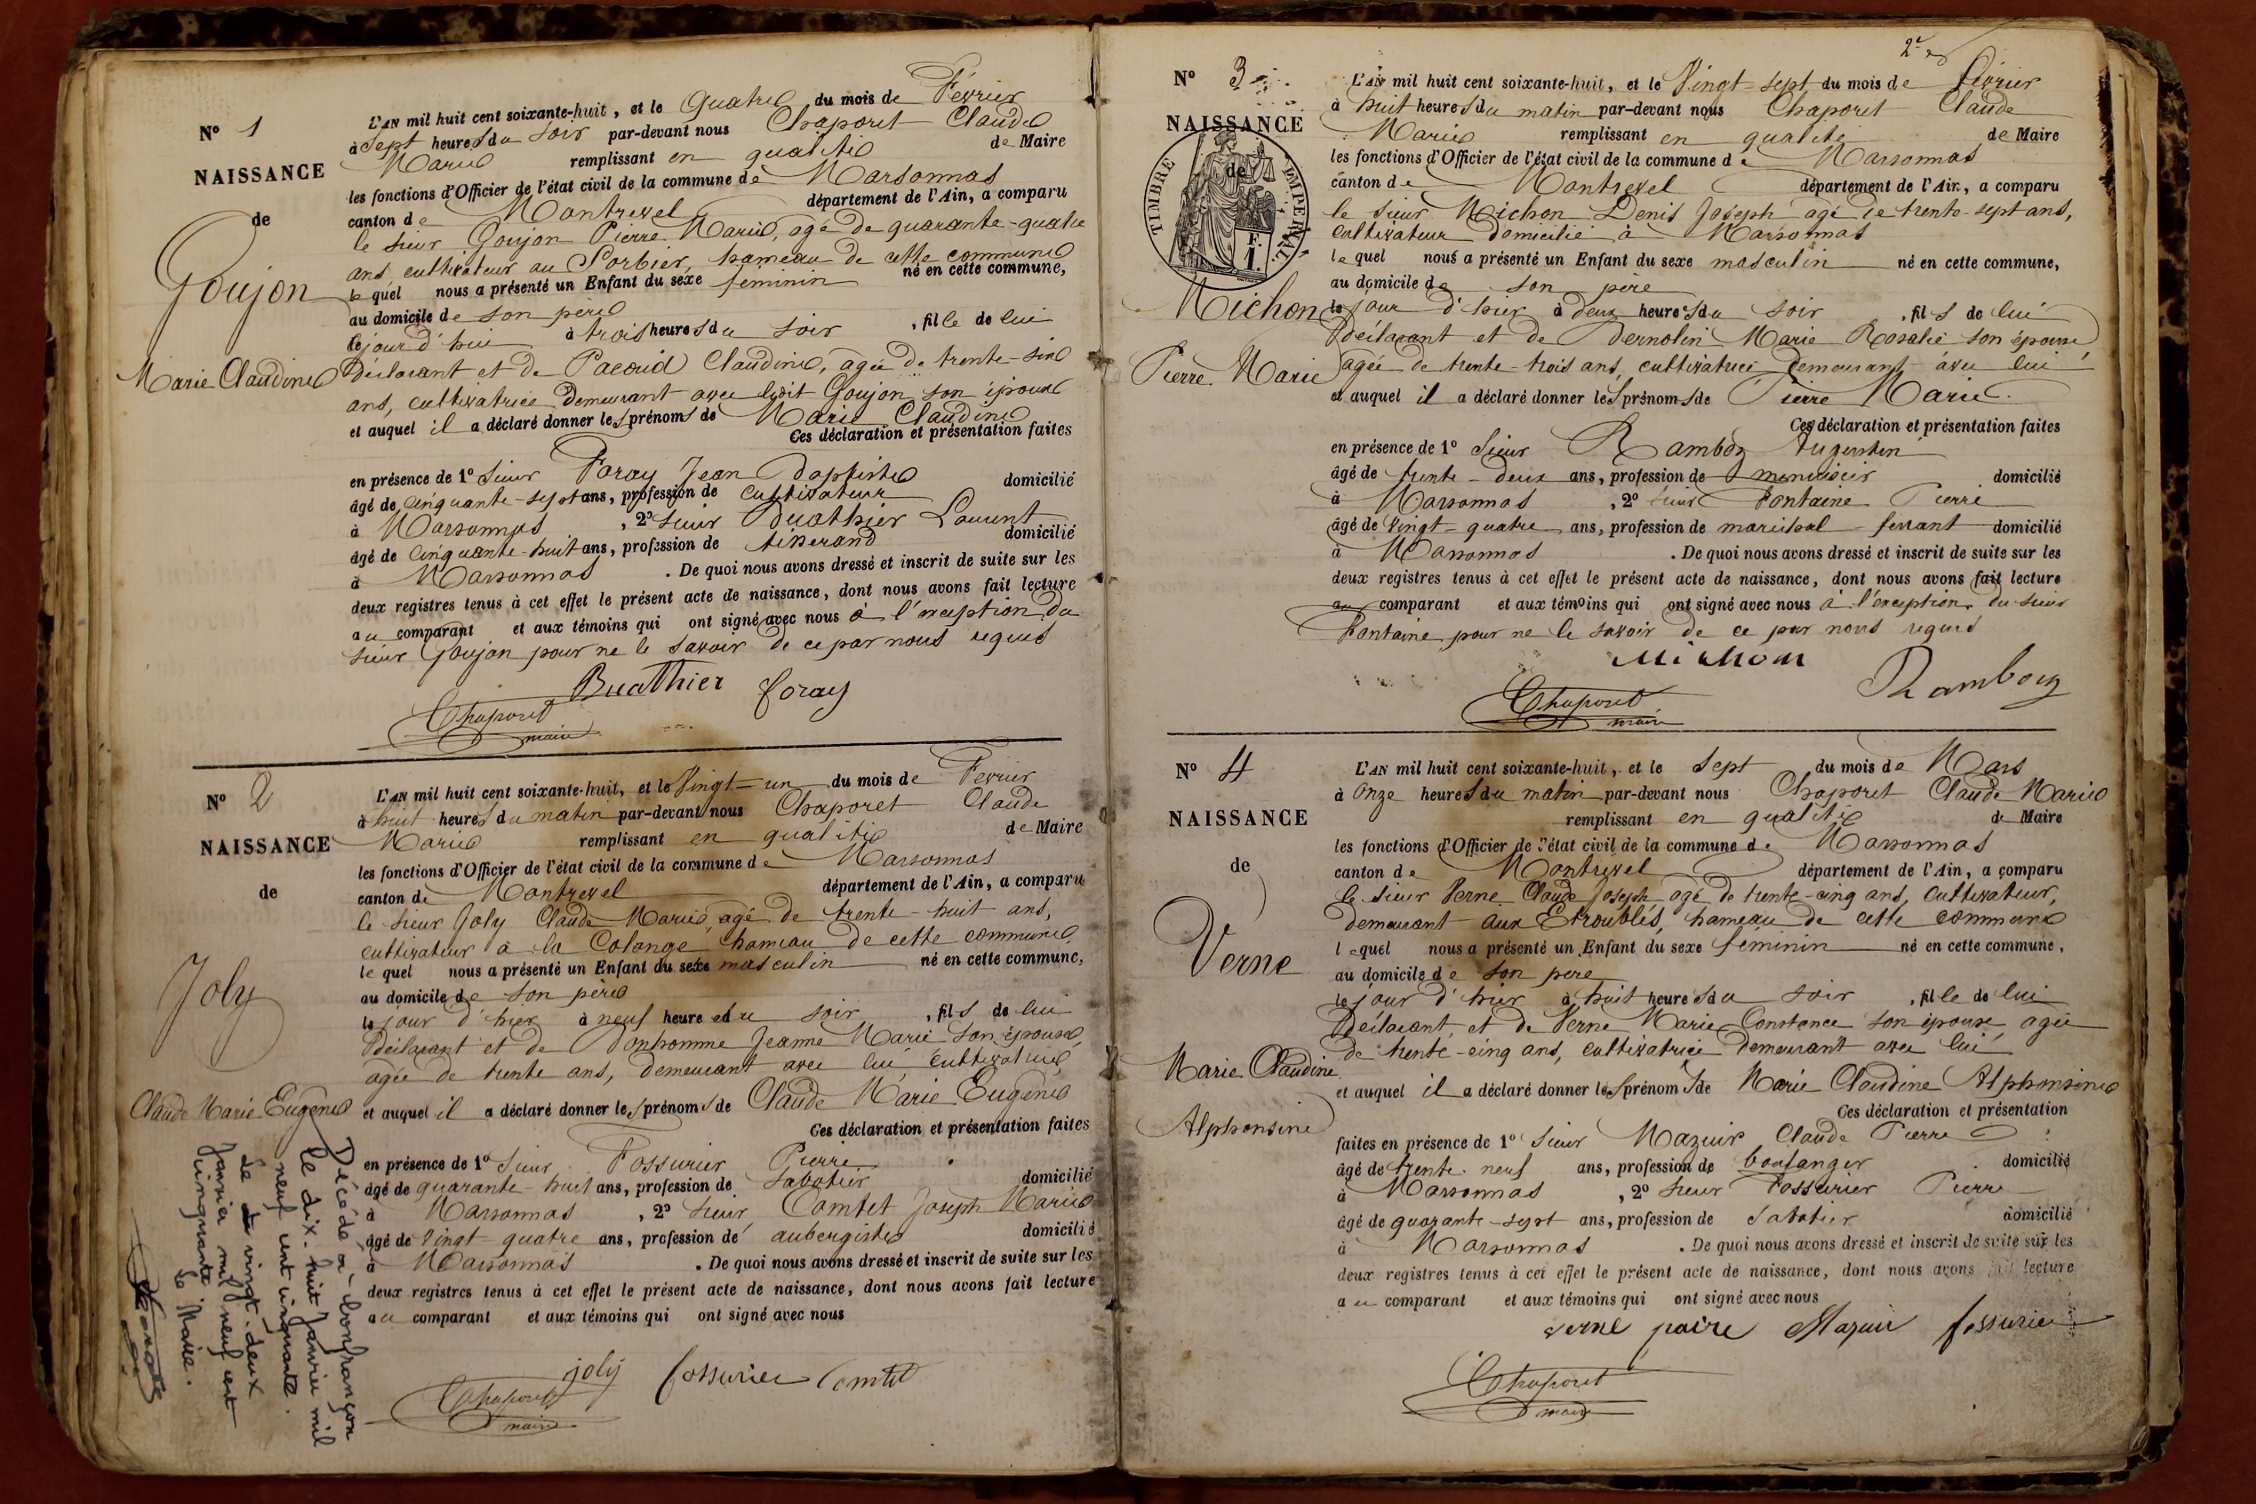 N° 1
NAISSANCE
de
Goujon
Marie Claudine
L'AN mil huit cent soixante-huit, et le Quatre du mois de Février
à Sept heures du Soir par-devant nous Chaporet Claude
Marie remplissant en qualité de Maire
les fonctions d'Officier de l'état civil de la commune de Marsonnas
canton de Montrevel département de l'Ain, a comparu
le sieur Goujon Pierre Marie, agé de quarante-quatre
ans cultivateur au Sorbier, hameau de cette commune
lequel nous a présenté un Enfant du sexe féminin né en cette commune,
au domicile de son père
le jour d'hui à trois heures du soir, fille de lui
Déclarant et de Pacoud Claudine, agée de trente-six
ans, cultivatrice demeurant avec ledit Goujon son époux
et auquel il a déclaré donner les prénoms de Marie Claudine
Ces déclaration et présentation faites
en présence de 1° Sieur Foray Jean Baptiste domicilié
âgé de cinquante-sept ans, profession de cultivateur
à Marsonnas, 2° sieur Buathier Laurent
âgé de cinquante-huit ans, profession de tisserand domicilié
à Marsonnas. De quoi nous avons dressé et inscrit de suite sur les
deux registres tenus à cet effet le présent acte de naissance, dont nous avons fait lecture
au comparant et aux témoins qui ont signé avec nous à l'exception du
sieur Goujon pour ne le savoir de ce par nous requis
Buathier foray
Chaporet
maire
N° 2
NAISSANCE
de
Joly
Claude Marie Eugène
L'AN mil huit cent soixante-huit, et le Vingt-un du mois de Fevrier
à huit heures du matin par-devant nous Chaporet Claude
Marie remplissant en qualité de Maire
les fonctions d'Officier de l'état civil de la commune de Marsonnas
canton de Montrevel département de l'Ain, a comparu
le sieur Joly Claude Marie, agé de trente-huit ans,
cultivateur à la Colange hameau de cette commune
lequel nous a présenté un Enfant du sexe masculin né en cette commune,
au domicile de son père
le jour d'hier à neuf heure du soir, fils de lui
Déclarant et de Bonhomme Jeanne Marie son épouse,
agée de trente ans, demeurant avec lui, cultivatrice
et auquel il a déclaré donner les prénoms de Claude Marie Eugène
Ces déclaration et présentation faites
en présence de 1° Sieur Fossurier Pierre
âgé de quarante-huit ans, profession de Sabotier domicilié
à Marsonnas, 2° sieur Comtet Joseph Marie
âgé de vingt-quatre ans, profession de aubergiste domicilié
à Marsonnas. De quoi nous avons dressé et inscrit de suite sur les
deux registres tenus à cet effet le présent acte de naissance, dont nous avons fait lecture
au comparant et aux témoins qui ont signé avec nous
joly fossurier Comtet
Chaporet
maire
Décédé à Confrançon
le dix-huit Janvier mil
neuf cent cinquante.
Le vingt-deux
Janvier mil neuf cent
cinquante
Le Maire.
2e
N° 3
NAISSANCE
de
TIMBRE IMPERIAL.
F.
1.
Michon
Pierre Marie
L'AN mil huit cent soixante-huit, et le Vingt-sept du mois de Février
à huit heures du matin par-devant nous Chaporet Claude
Marie remplissant en qualité de Maire
les fonctions d'Officier de l'état civil de la commune de Marsonnas
canton de Montrevel département de l'Ain, a comparu
le sieur Michon Denis Joseph agé de trente-sept ans,
cultivateur domicilié à Marsonnas
lequel nous a présenté un Enfant du sexe masculin né en cette commune,
au domicile de son père
le jour d'hier à deux heures du soir, fils de lui
Déclarant et de Bernolin Marie Rosalie son épouse
agée de trente-trois ans, cultivatrice demeurant avec lui
et auquel il a déclaré donner les prénoms de Pierre Marie.
Ces déclaration et présentation faites
en présence de 1° Sieur Ramboz Augustin
âgé de trente-deux ans, profession de menuisier domicilié
à Marsonnas, 2° sieur Fontaine Pierre
âgé de Vingt-quatre ans, profession de maréchal-ferrant domicilié
à Marsonnas. De quoi nous avons dressé et inscrit de suite sur les
deux registres tenus à cet effet le présent acte de naissance, dont nous avons fait lecture
au comparant et aux témoins qui ont signé avec nous à l'exception du sieur
Fontaine pour ne le savoir de ce par nous requis
Michon Ramboz
Chaporet
maire
N° 4
NAISSANCE
de
Verne
Marie Claudine
Alphonsine
L'AN mil huit cent soixante-huit, et le Sept du mois de Mars
à Onze heures du matin par-devant nous Chaporet Claude Marie
remplissant en qualité de Maire
les fonctions d'Officier de l'état civil de la commune de Marsonnas
canton de Montrevel département de l'Ain, a comparu
le sieur Verne Claude Joseph agé de trente-cinq ans, cultivateur,
demeurant aux Etroublés, hameau de cette commune
lequel nous a présenté un Enfant du sexe féminin né en cette commune,
au domicile de son père
le jour d'hier à huit heures du soir, fille de lui
Déclarant, et de Verne Marie Constance son épouse, agée
de trente-cinq ans, cultivatrice demeurant avec lui
et auquel il a déclaré donner les prénoms de Marie Claudine Alphonsine
Ces déclaration et présentation
faites en présence de 1° Sieur Mazuir Claude Pierre
âgé de trente-neuf ans, profession de boulanger domicilié
à Marsonnas, 2° sieur Fossurier Pierre
âgé de quarante-sept ans, profession de Sabotier domicilié
à Marsonnas. De quoi nous avons dressé et inscrit de suite sur les
deux registres tenus à cet effet le présent acte de naissance, dont nous avons fait lecture
au comparant et aux témoins qui ont signé avec nous
verne paire Mazuir fossurier
Chaporet
maire